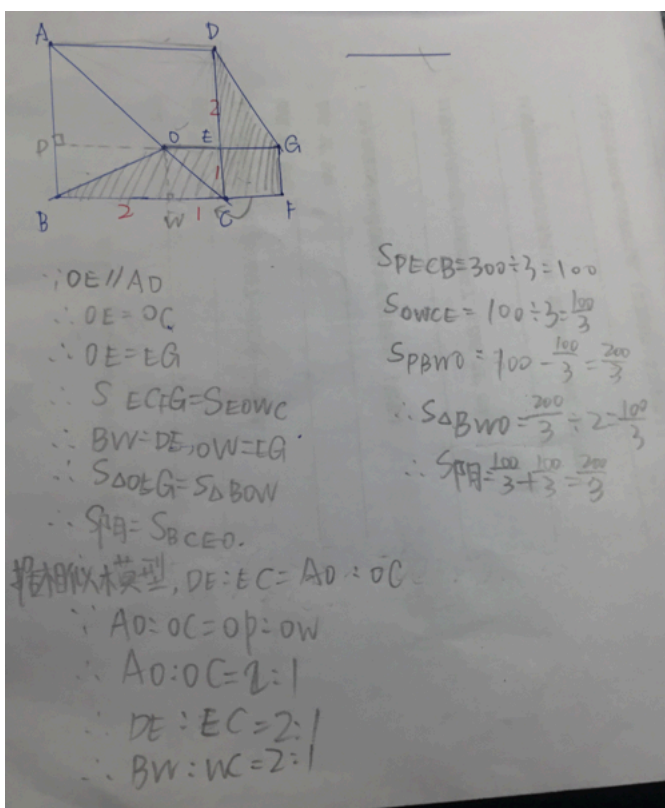 A D
2
P O E G
1
B 2 W 1 C F
∵OE∥AD
∴OE=OC
∴OE=EG
∴S ECFG=SEOWC
∴BW=DE,OW=EG
∴S△OEG=S△BOW
∴S阴=SBCEO.
相似模型,DE:EC=AO:OC
∵AO:OC=OP:OW
∴AO:OC=2:1
∴DE:EC=2:1
∴BW:WC=2:1
SPECB=300÷3=100
SOWCE=100÷3=100/3
SPBWO=100-100/3=200/3
∴S△BWO=200/3÷2=100/3
∴S阴=100/3+100/3=200/3